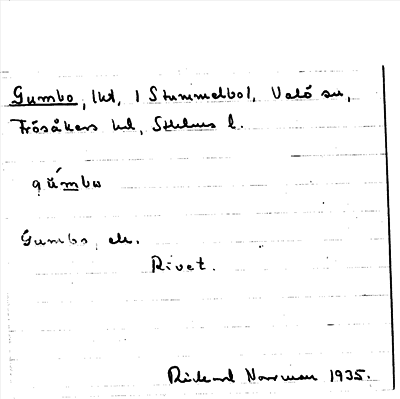 Gumbo, lkl, 1 Stummelbol, Valö sn,
Frösåkers hd, Sthlms l.
gúmbω
Gumbo, ek.
Rivet.
Rickard Norrman 1935.